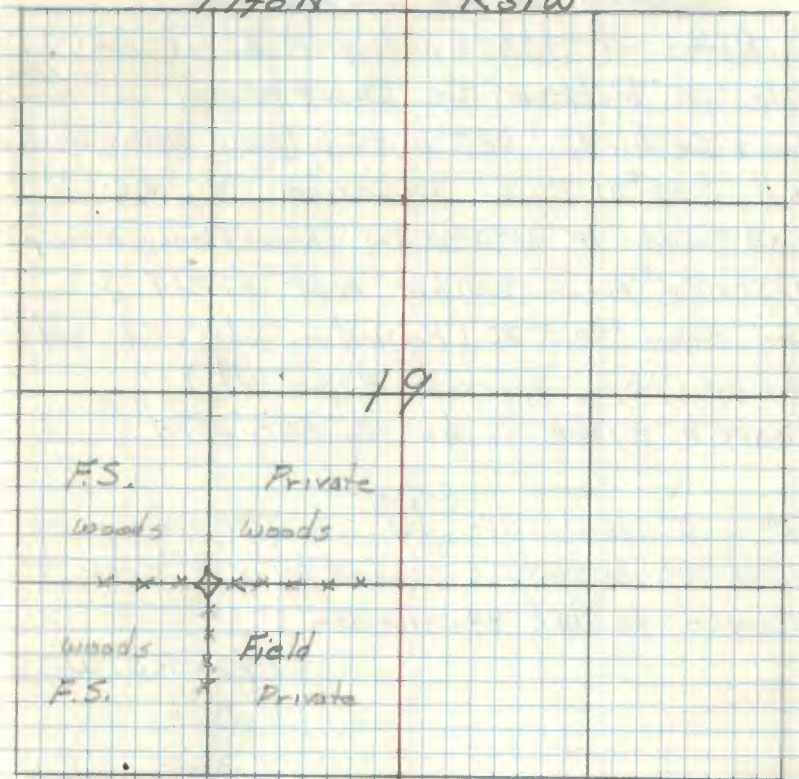 R31W
19
F.S. Private
woods woods
woods Field
F.S. Private